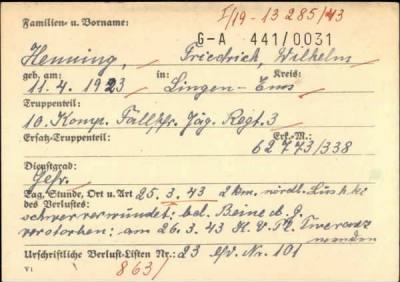 I/19-13 285/43
Familien- u. Vorname:
G-A 441/0031
Henning, Friedrich, Wilhelm
geb. am: in: Kreis:
11.4.1923 Lingen-Ems
Truppenteil:
10. Komp. Fallschr. Jäg. Regt. 3
Ersatz-Truppenteil: Erk.-M.:
62773/338
Dienstgrad:
Gefr.
Tag, Stunde, Ort u. Art 25.3.43 2 km nördl.
des Verlustes:
schwer verwundet: bd. Beine d. G.
verstorben: am 26.3.43 H.V.Pl.
Urschriftliche Verlust-Listen Nr.: 23 lfd. Nr. 101
V I 863/